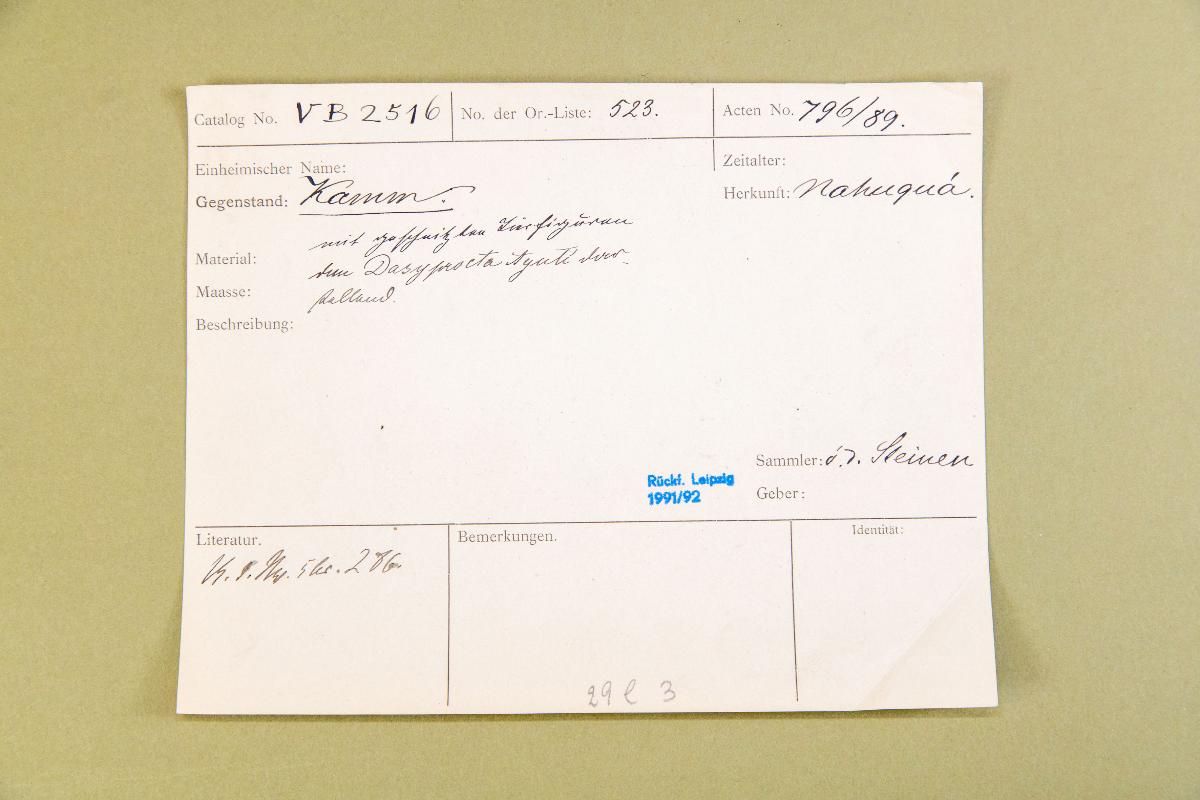 Catalog No. VB 2516 No. der Or.-Liste: 523. Acten No. 796/89.
Einheimischer Name: Zeitalter:
Gegenstand: Kamm. Herkunft: Nahuquá.
mit geschnitzten Tierfiguren
Material: den Dasyprocta Aguti dar-
Maasse: stellend.
Beschreibung:
Sammler: v. d. Steinen
Rückf. Leipzig
1991/92
Geber:
Literatur. Bemerkungen. Identität:
29 l 3